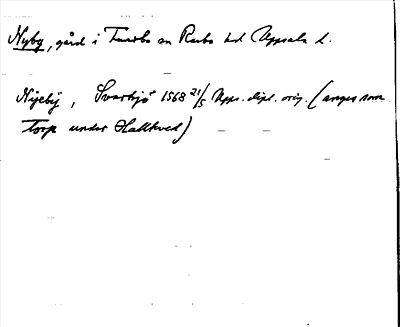 Nyby, gård i Funbo sn Rasbo hd Uppsala l.
Nijebij, Svartsjö 1568 21/5 Upps. dipl. orig. (anges som
torp under Hallkved)